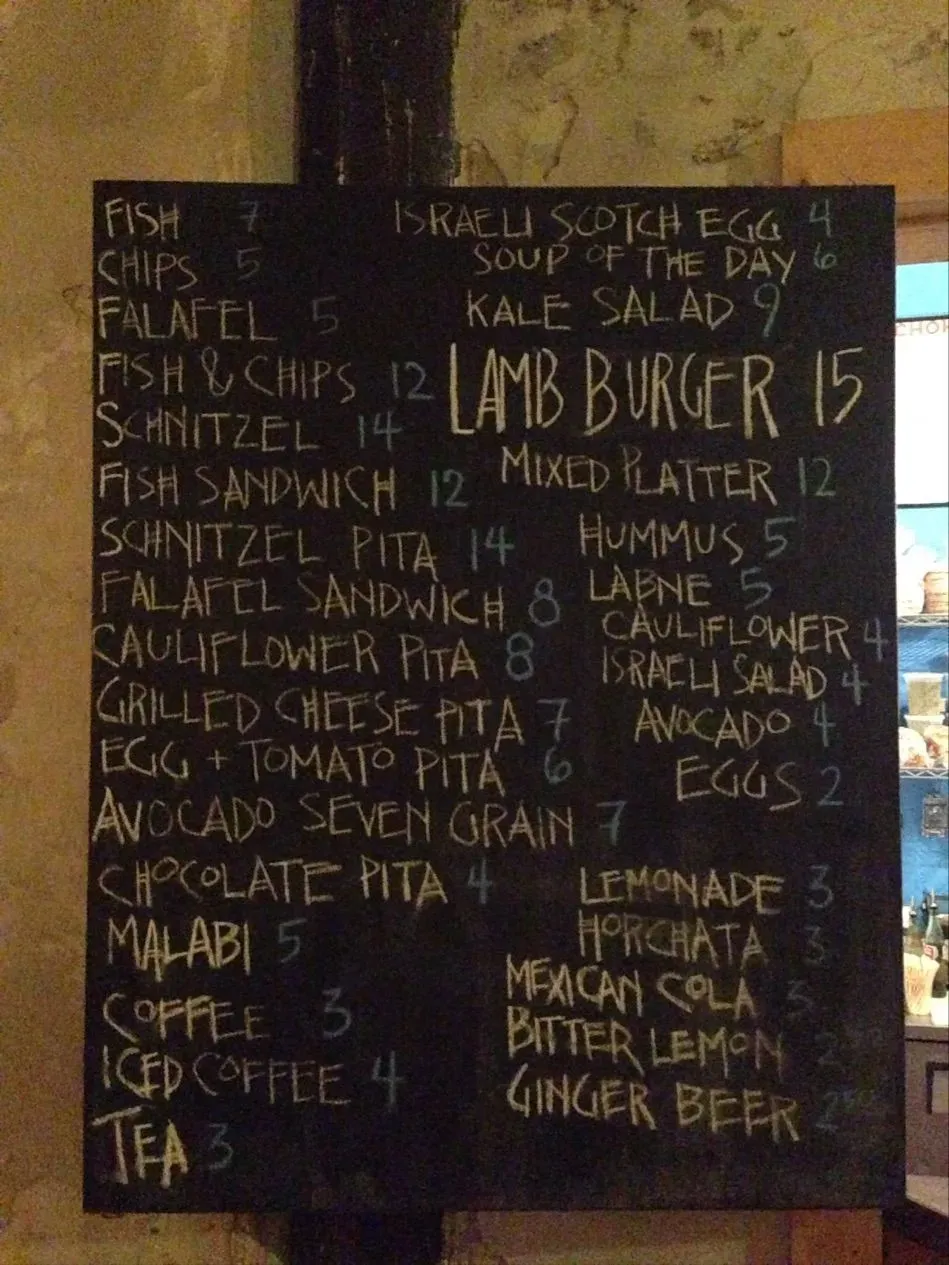 FISH 7
CHIPS 5
FALAFEL 5
FISH & CHIPS 12
SCHNITZEL 14
FISH SANDWICH 12
SCHNITZEL PITA 14
FALAFEL SANDWICH 8
CAULIFLOWER PITA 8
GRILLED CHEESE PITA 7
EGG + TOMATO PITA 6
AVOCADO SEVEN GRAIN 7
CHOCOLATE PITA 4
MALABI 5
COFFEE 3
ICED COFFEE 4
TEA 3
ISRAELI SCOTCH EGG 4
SOUP OF THE DAY 6
KALE SALAD 9
LAMB BURGER 15
MIXED PLATTER 12
HUMMUS 5
LABNE 5
CAULIFLOWER 4
ISRAELI SALAD 4
AVOCADO 4
EGGS 2
LEMONADE 3
HORCHATA 3
MEXICAN COLA 3
BITTER LEMON 2⁵⁰
GINGER BEER 2⁵⁰